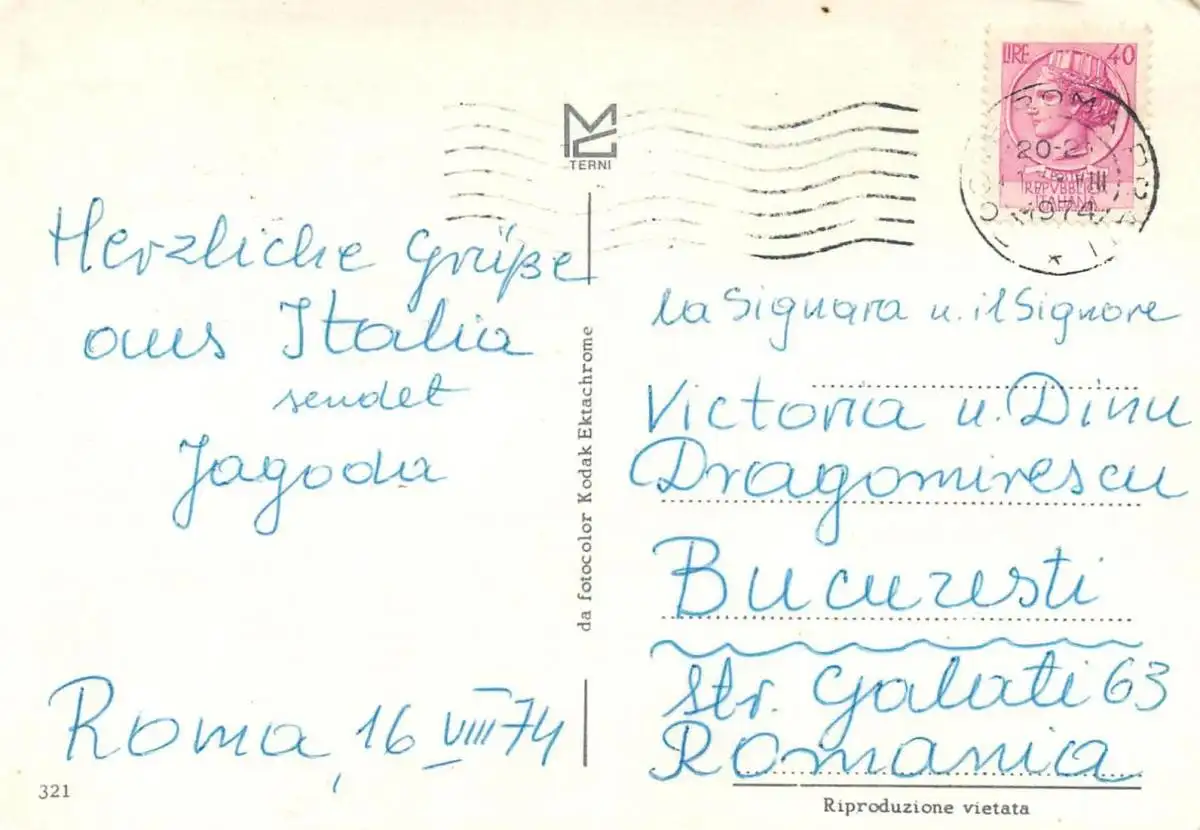 LIRE 40
ROMA
20-2
VIII
1974
REPVBBLICA
ITALIANA
TERNI
Herzliche Grüße
aus Italia
sendet
Jagoda
Roma, 16 VIII 74
321
da fotocolor Kodak Ektachrome
la Signara u. il Signore
Victoria u. Dinu
Dragomirescu
Bucuresti
Str. Galati 63
Romania
Riproduzione vietata